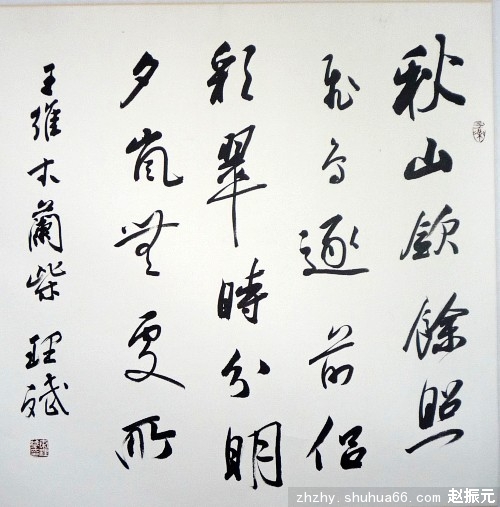 秋山歛餘照
飛鳥逐前侶
彩翠時分明
夕嵐無處所
王維木蘭柴 理斌
zhzhy.shuhua66.com 赵振元